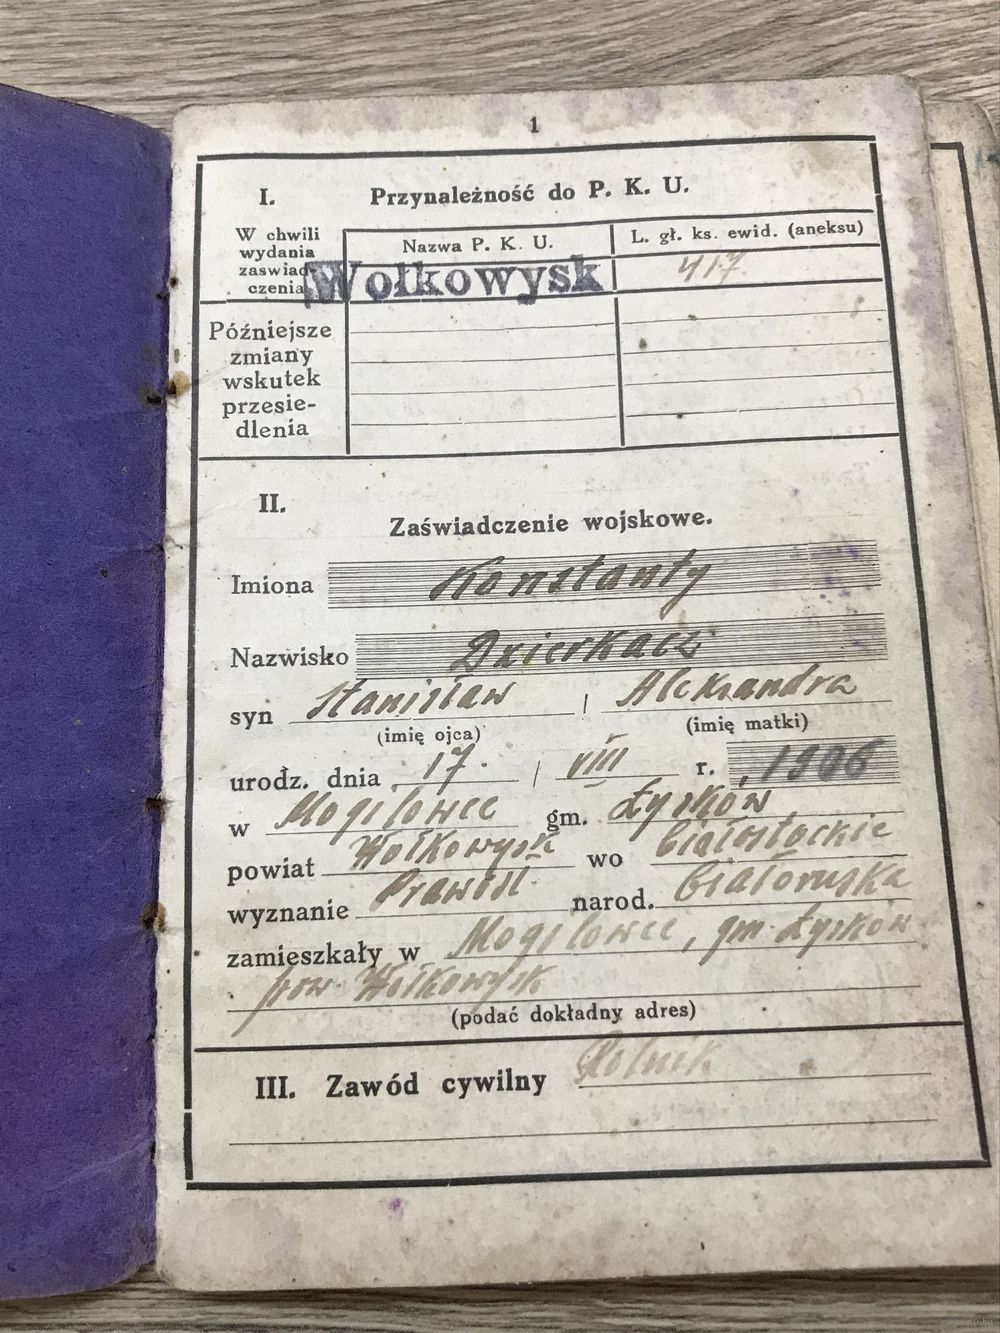 1
I. Przynależność do P. K. U.
W chwili wydania zaświad czenia
Nazwa P. K. U.
L. gł. ks. ewid. (aneksu)
Wołkowysk
417.
Późniejsze
zmiany
wskutek
przesie-
dlenia
II.
Zaświadczenie wojskowe.
Imiona Konstanty
Nazwisko Dzierkacz
syn Stanisław | Aleksandra
(imię ojca) (imię matki)
urodz. dnia 17. | VIII r. 1906
w Mogilowce gm. Łysków
powiat Wołkowysk wo białostockie
wyznanie Prawosł. narod. białoruska
zamieszkały w Mogilowce, gm. Łysków
pow. Wołkowysk
(podać dokładny adres)
III. Zawód cywilny Rolnik